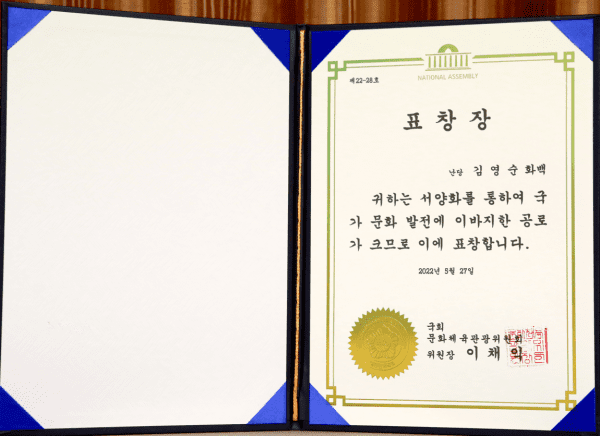 NATIONAL ASSEMBLY
제22-28호
표 창 장
난담 김 영 순 화백
귀하는 서양화를 통하여 국
가 문화 발전에 이바지한 공로
가 크므로 이에 표창합니다.
2022년 5월 27일
국회
문화체육관광위원회
위원장 이 채 익